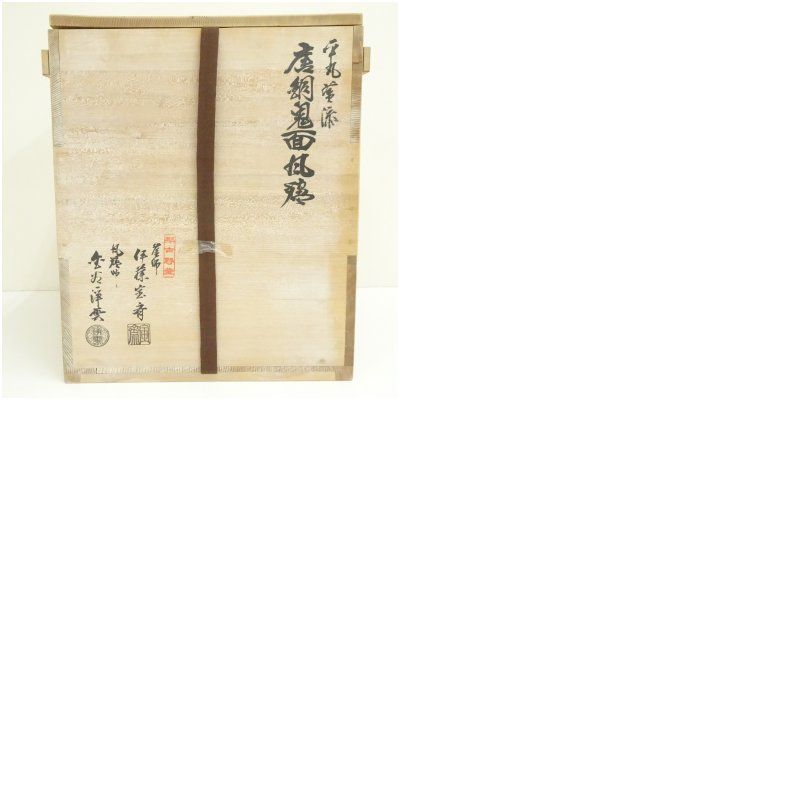 平丸釜添
唐銅鬼面風炉
釜師
伊藤宝斎
風炉師
金谷浄雲